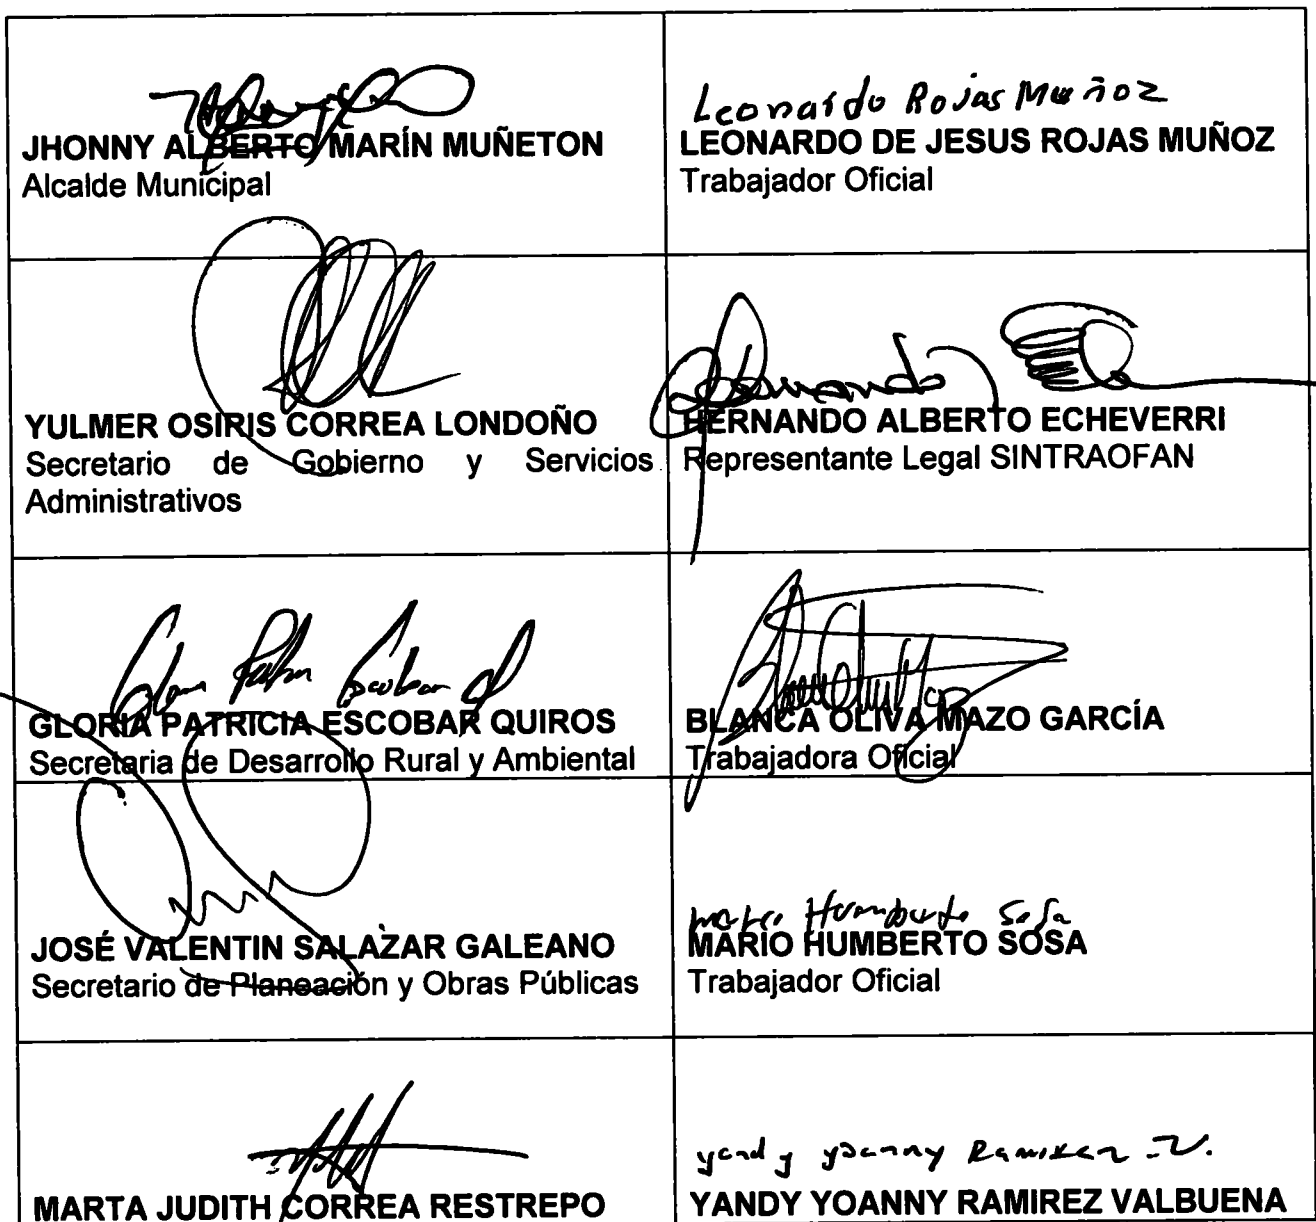 Leonardo Rojas Muñoz
JHONNY ALBERTO MARÍN MUÑETON
Alcalde Municipal
LEONARDO DE JESUS ROJAS MUÑOZ
Trabajador Oficial
Hernando
YULMER OSIRIS CORREA LONDOÑO
Secretario de Gobierno y Servicios
Administrativos
HERNANDO ALBERTO ECHEVERRI
Representante Legal SINTRAOFAN
GLORIA PATRICIA ESCOBAR QUIROS
Secretaria de Desarrollo Rural y Ambiental
BLANCA OLIVA MAZO GARCÍA
Trabajadora Oficial
JOSÉ VALENTIN SALAZAR GALEANO
Secretario de Planeación y Obras Públicas
Humberto Sosa
MARIO HUMBERTO SOSA
Trabajador Oficial
MARTA JUDITH CORREA RESTREPO
yandy yoanny Ramirez .V.
YANDY YOANNY RAMIREZ VALBUENA